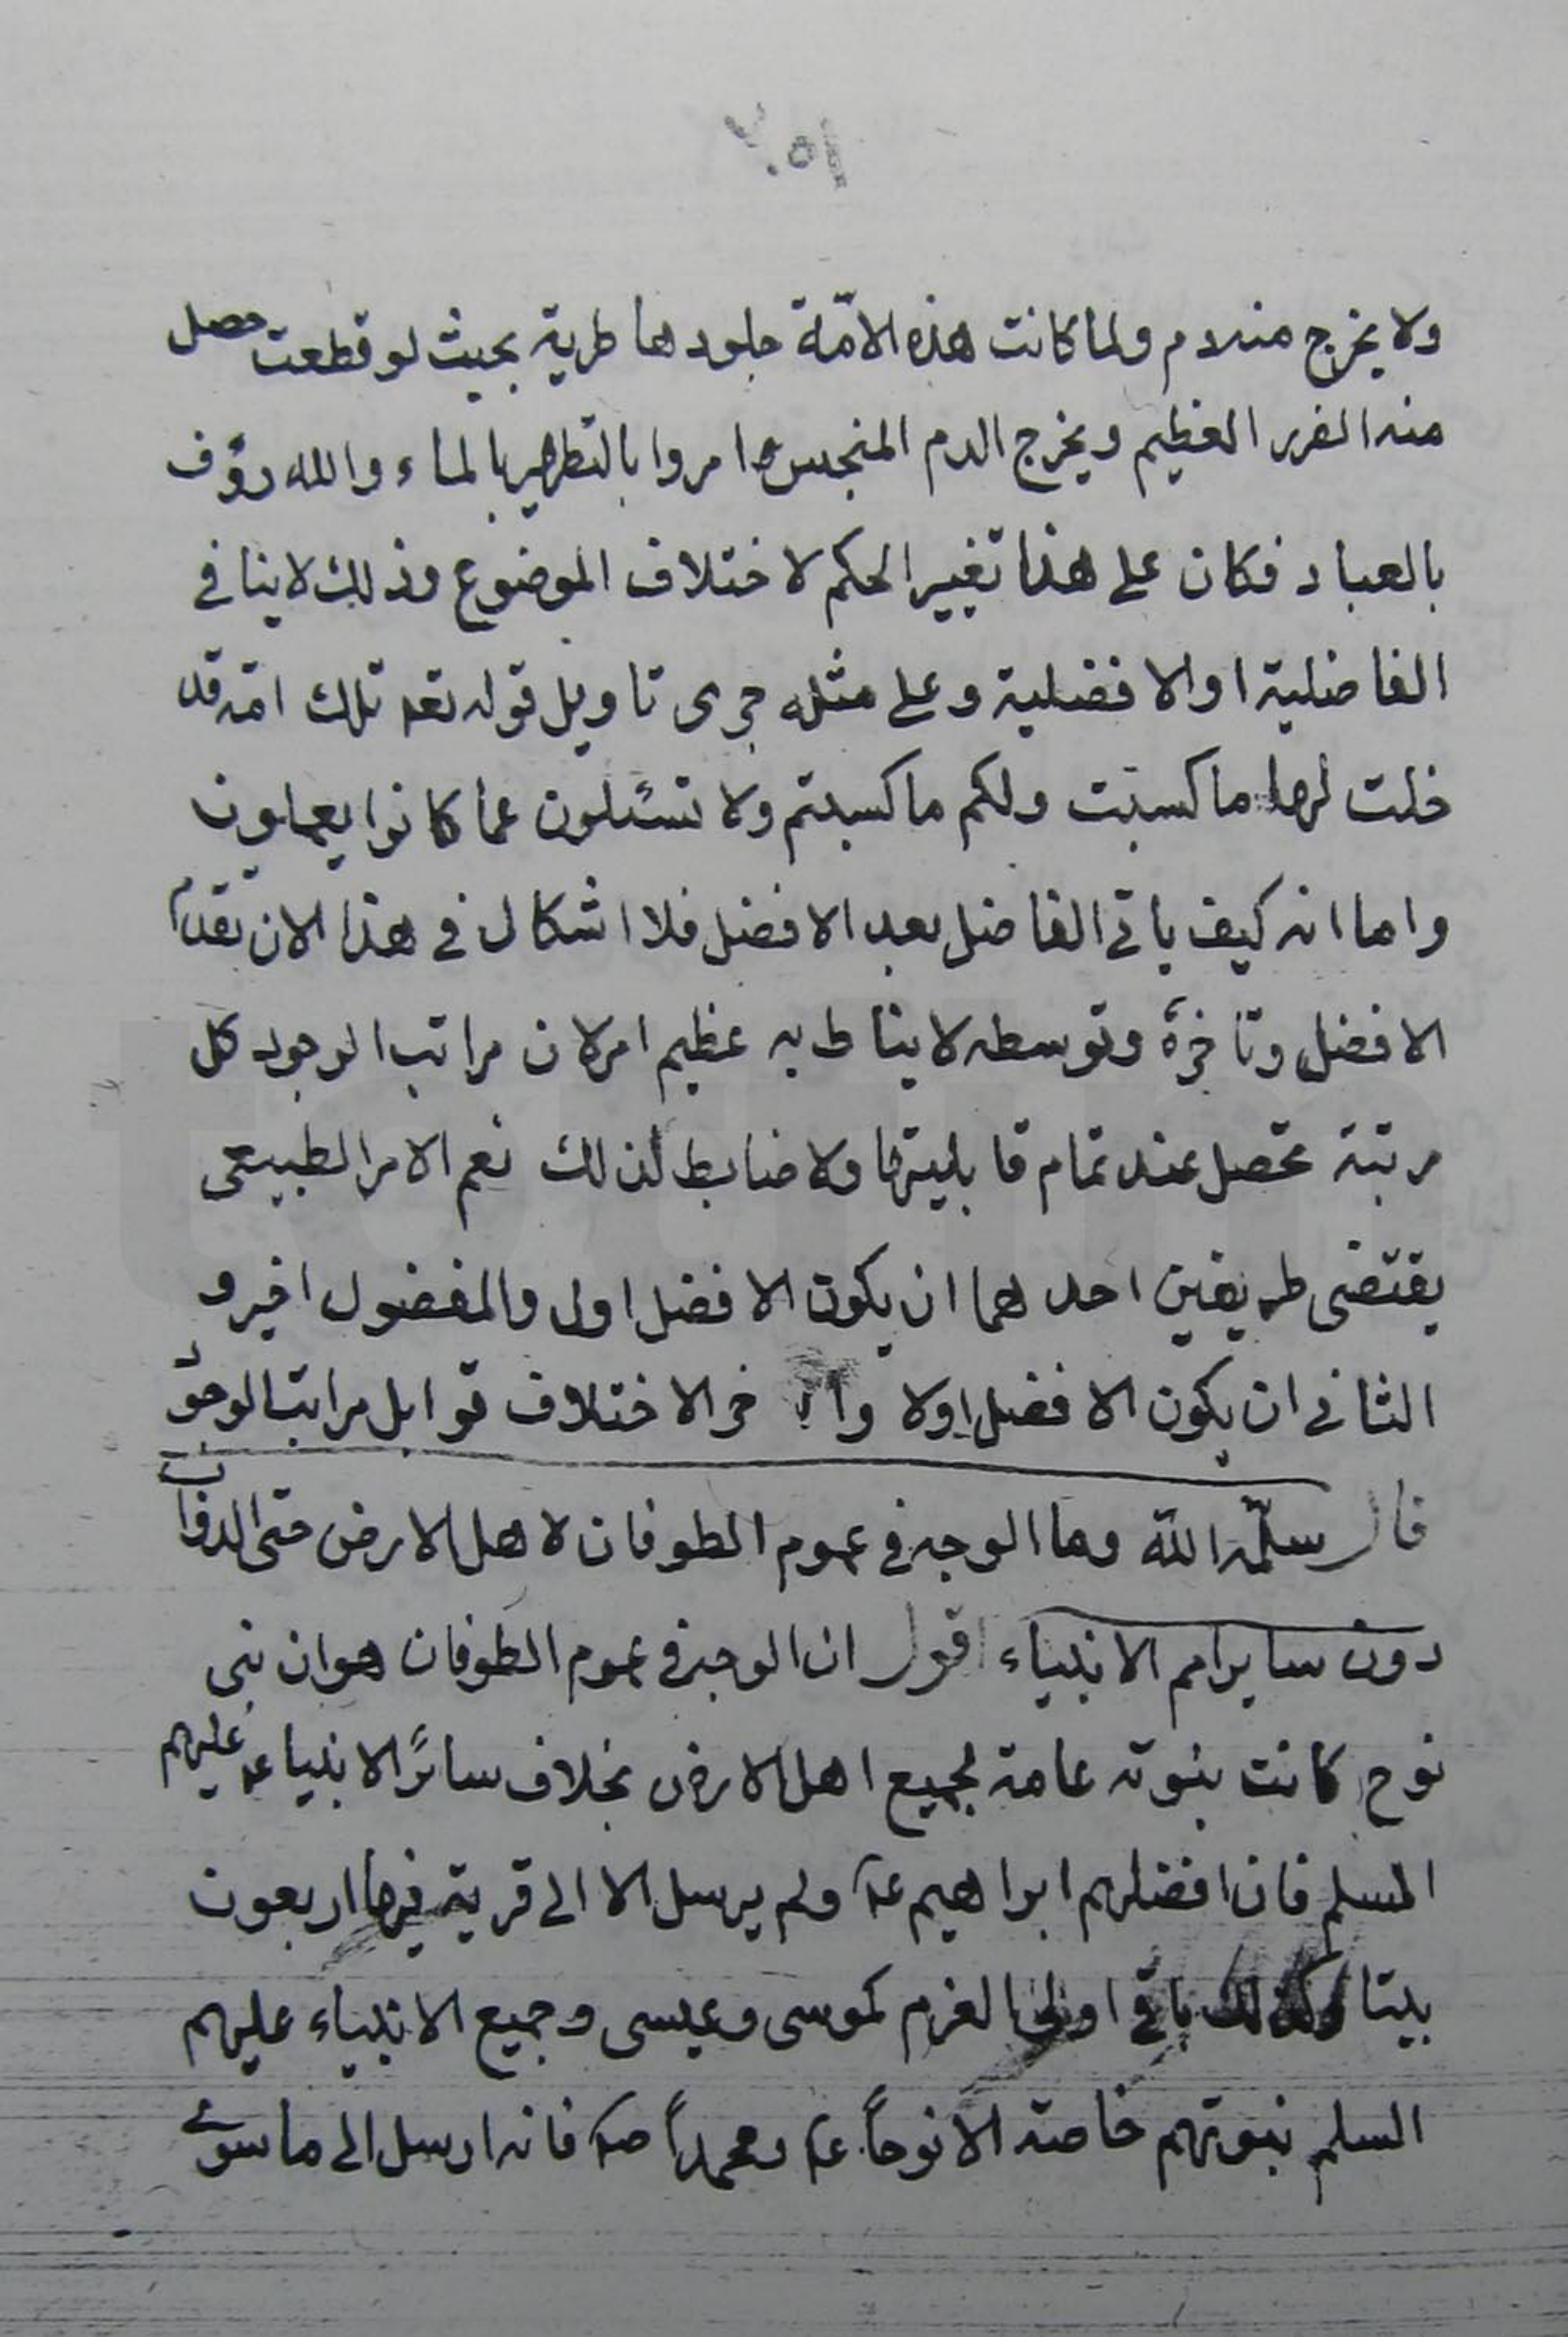 ولا يخرج منه دم ولما كانت هذه الامّة جلودها طرية بحيث لو قطعت حصل
منه الضرر العظيم ويخرج الدم المنجس امروا بالتطهير بالماء والله رؤف
بالعباد فكان على هذا تغيير الحكم لاختلاف الموضوع وذلك لا ينافي
الفاضلية او الافضلية وعلى مثله جرى تاويل قوله تعه تلك امة قد
خلت لها ما كسبت ولكم ما كسبتم ولا تسئلون عما كانوا يعملون
واما انه كيف ياتي الفاضل بعد الافضل فلا اشكال في هذا لان تقدم
الافضل وتاخره وتوسطه لا يناط به عظيم امر لان مراتب الوجود كل
مرتبة تحصل عند تمام قابليتها ولا ضابط لذلك نعم الامر الطبيعي
يقتضى طريقين احدهما ان يكون الافضل اولا والمفضول اخير و
الثاني ان يكون الافضل اولا خر الاختلاف قوابل مراتب الوجود
قال سلّمه الله وما الوجه في عموم الطوفان لاهل الارض حتى الدواب
دون ساير امم الانبياء اقول ان الوجه في عموم الطوفان هو ان نبى
نوح كانت بنوته عامة لجميع اهل الارض بخلاف سائر الانبياء عليهم
السلم فان افضلهم ابراهيم عه ولم يرسل الا الى قرية فيها اربعون
بيتا وكذلك باقي اولى العزم كموسى وعيسى وجميع الانبياء عليهم
السلم نبوتهم خاصة الا نوحاً عه ومحمداً صه فانه ارسل الى ما سوى